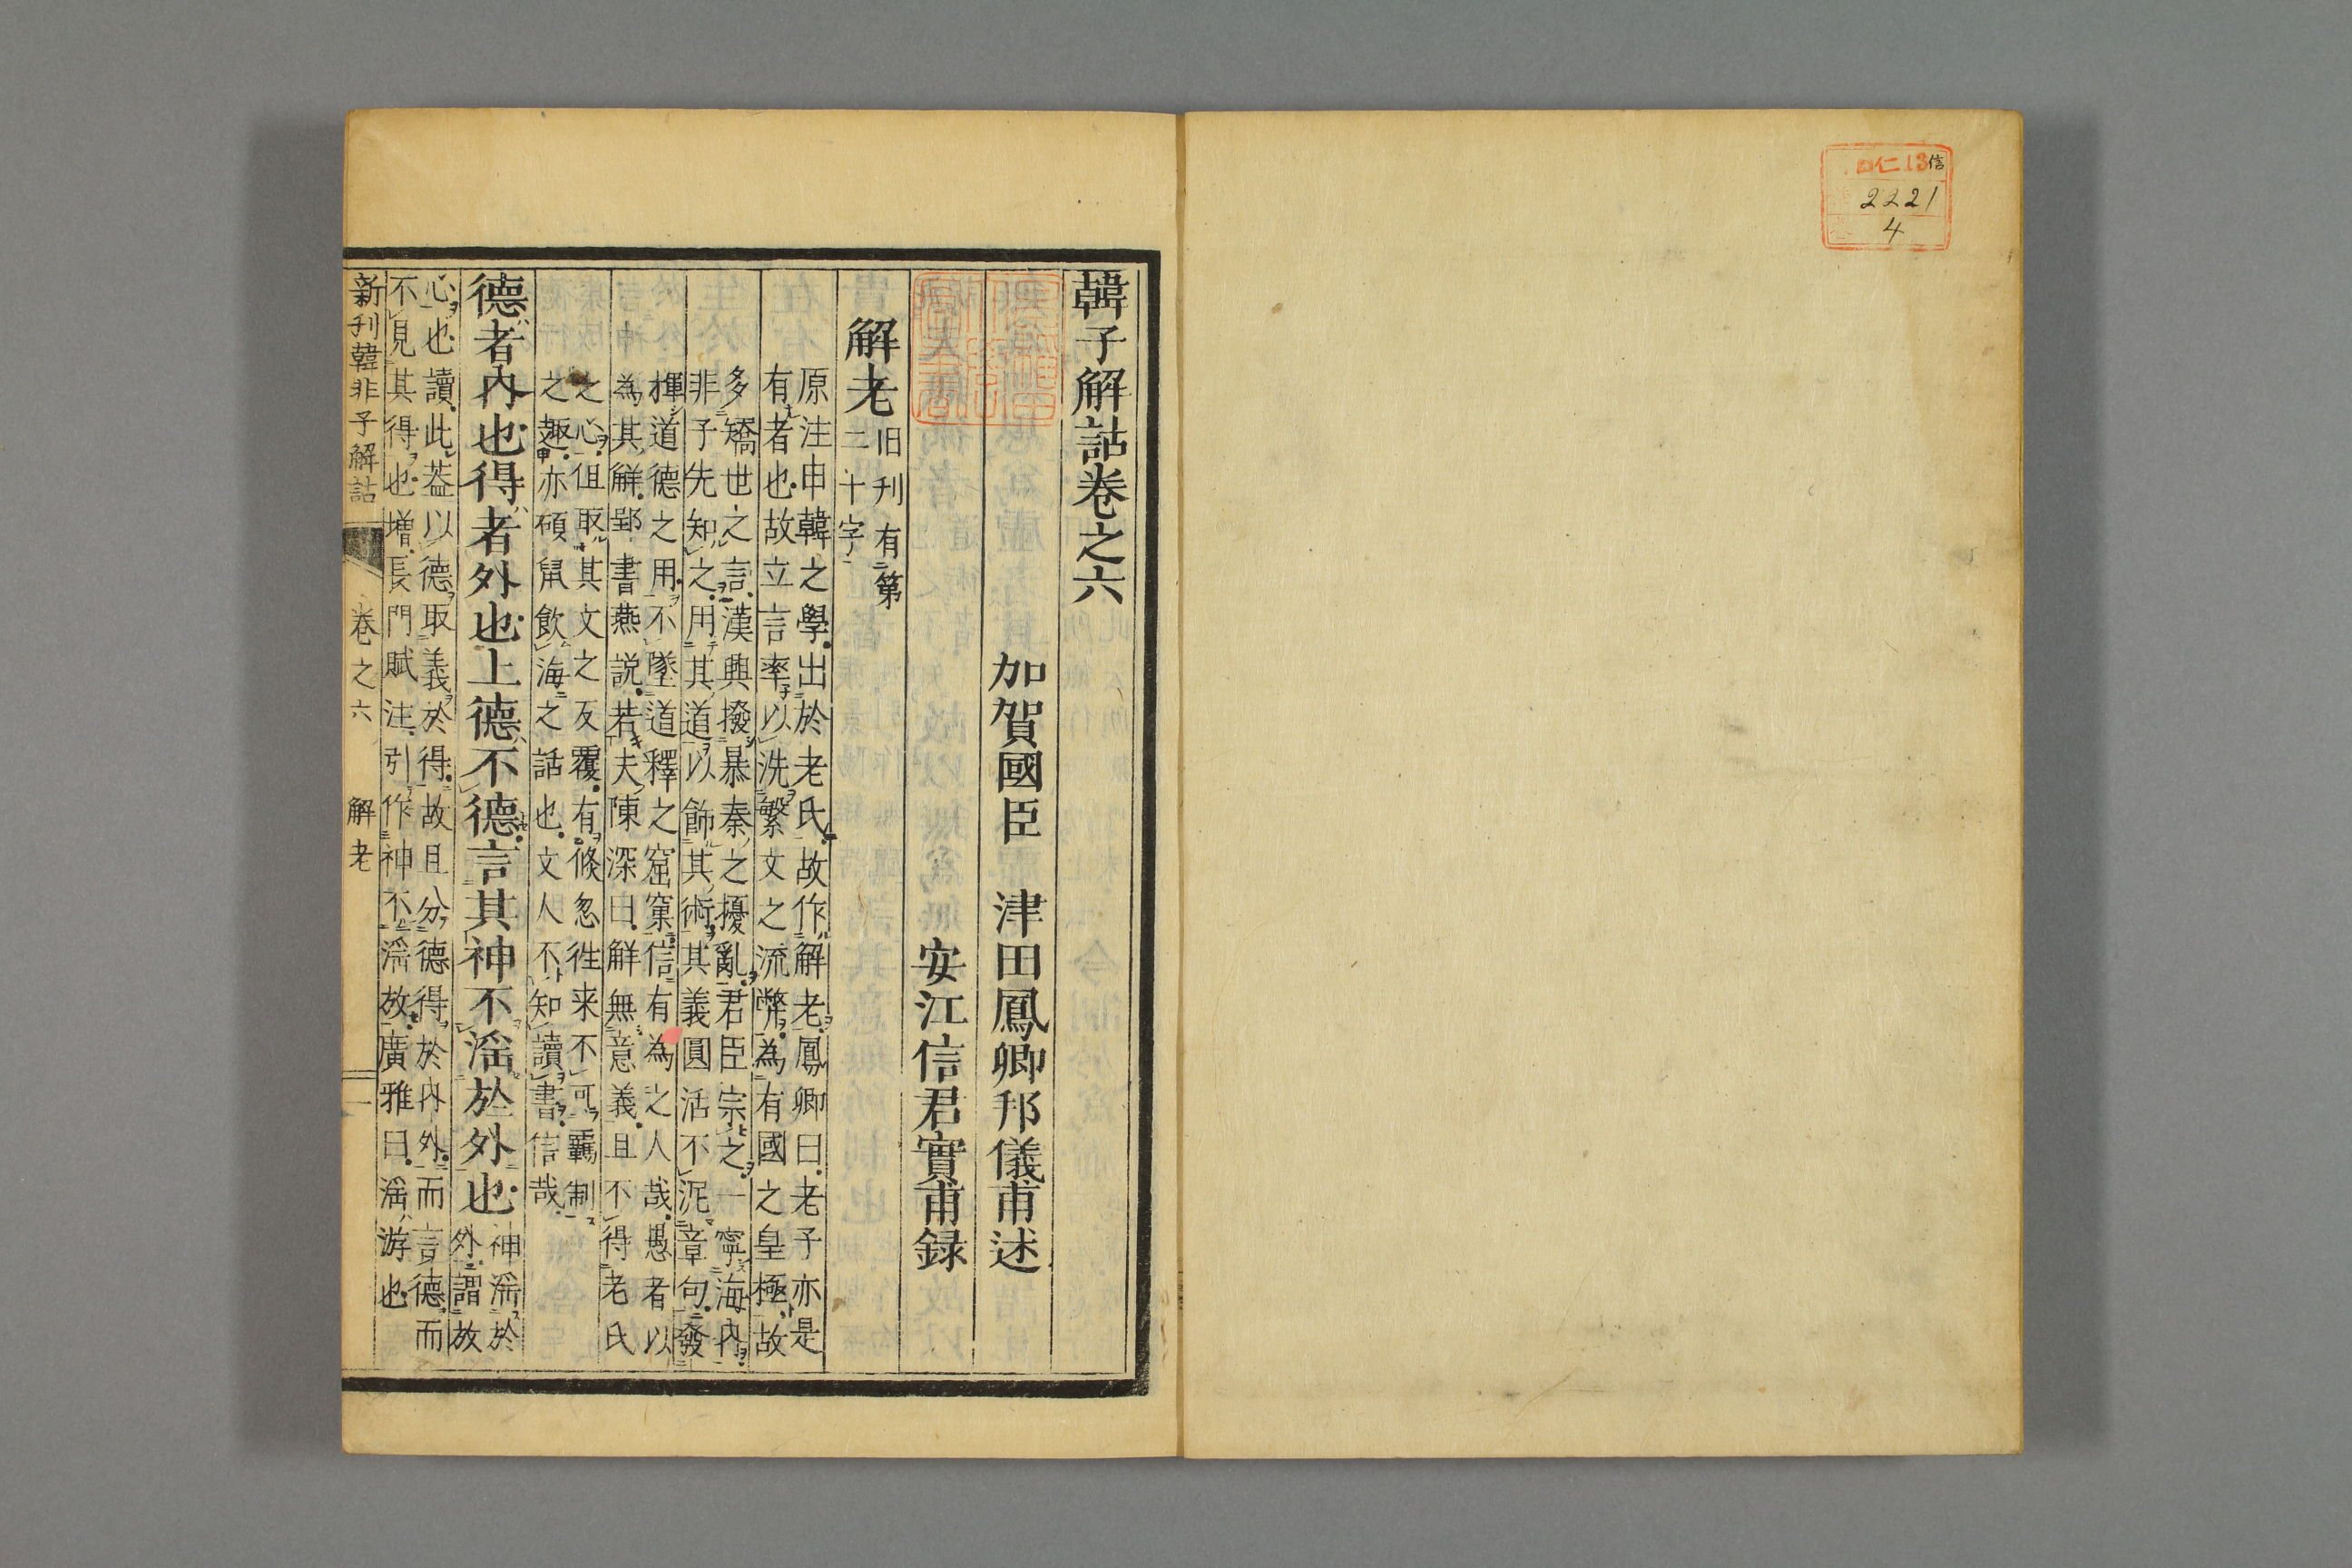 仁 13 信
2221
4
韓子解詁卷之六
加賀國臣 津田鳳卿邦儀甫述
安江信君實甫録
解老 旧刊有第
二十字
原注申韓之學出於老氏故作解老鳳卿曰老子亦是
有者也故立言率以洗繁文之流幣為有國之皇極故
多矯世之言漢興撥暴秦之擾亂君臣宗之一寧海內
非子先知之用其道以飾其術其義圓活不泥章句發
揮道德之用不墜道釋之窟窠信有為之人哉愚者以
為其解郢書燕説若夫陳深曰解無意義且不得老氏
之心但取其文之反覆有倏忽徃来不可羈制
之趣亦碩鼠飲海之話也文人不知讀書信哉
德者內也得者外也上德不德言其神不淫於外也 神淫於
外謂放
心也讀此葢以德取義於得故且分德得於内外而言德而
不見其得也增長門賦注引作神不淫放廣雅曰淫游也
新刊韓非子解詁 卷之六 解老 一